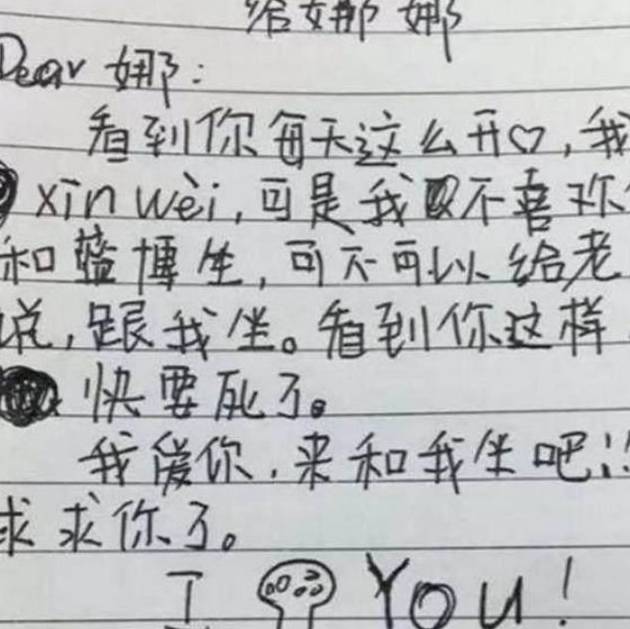 给娜娜
Dear 娜:
看到你每天这么开♡,我
xīn wèi,可是我不喜欢
和蓝博坐,可不可以给老
说,跟我坐。看到你这样
快要死了。
我爱你,来和我坐吧!!
求求你了。
I You!